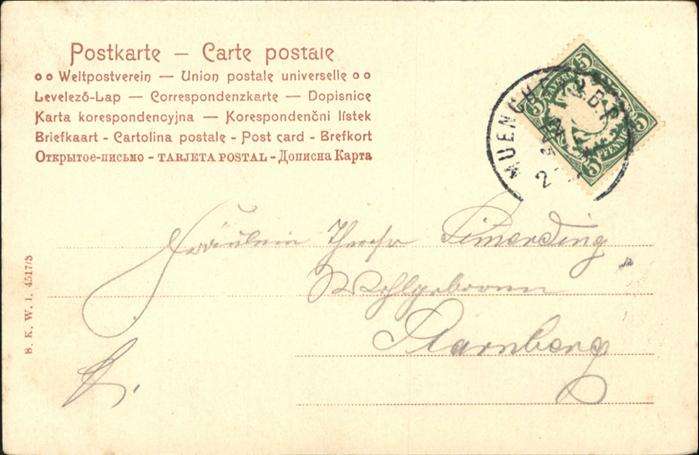 Postkarte — Carte postale
Weltpostverein — Union postale universelle
Levelező-Lap — Correspondenzkarte — Dopisnice
Karta korespondencyjna — Korespondenčni lístek
Briefkaart - Cartolina postale - Post card - Brefkort
Открытое-письмо - TARJETA POSTAL - Дописна Карта
MUENCHEN
BAYERN
5 5
5 5
PFENNIG
Fräulein Therese Simerding
Wohlgeboren
Starnberg
S. K. W. I. 4517/3